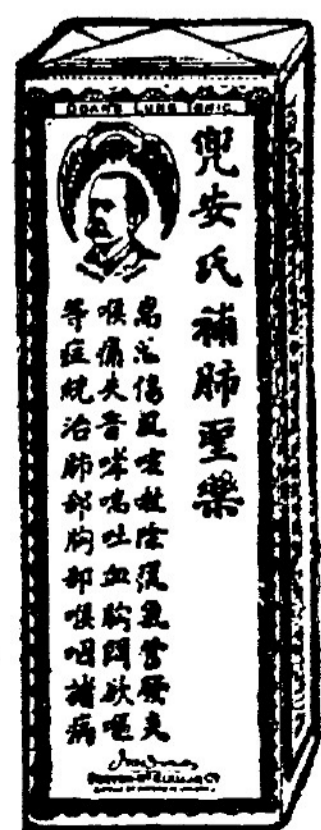 DOAN'S LUNG TONIC
兜安氏補肺聖藥
傷風咳嗽除痰氣管發炎
喉痛失音哮喘吐血胸悶欲嘔
等症統治肺部胸部喉咽諸病